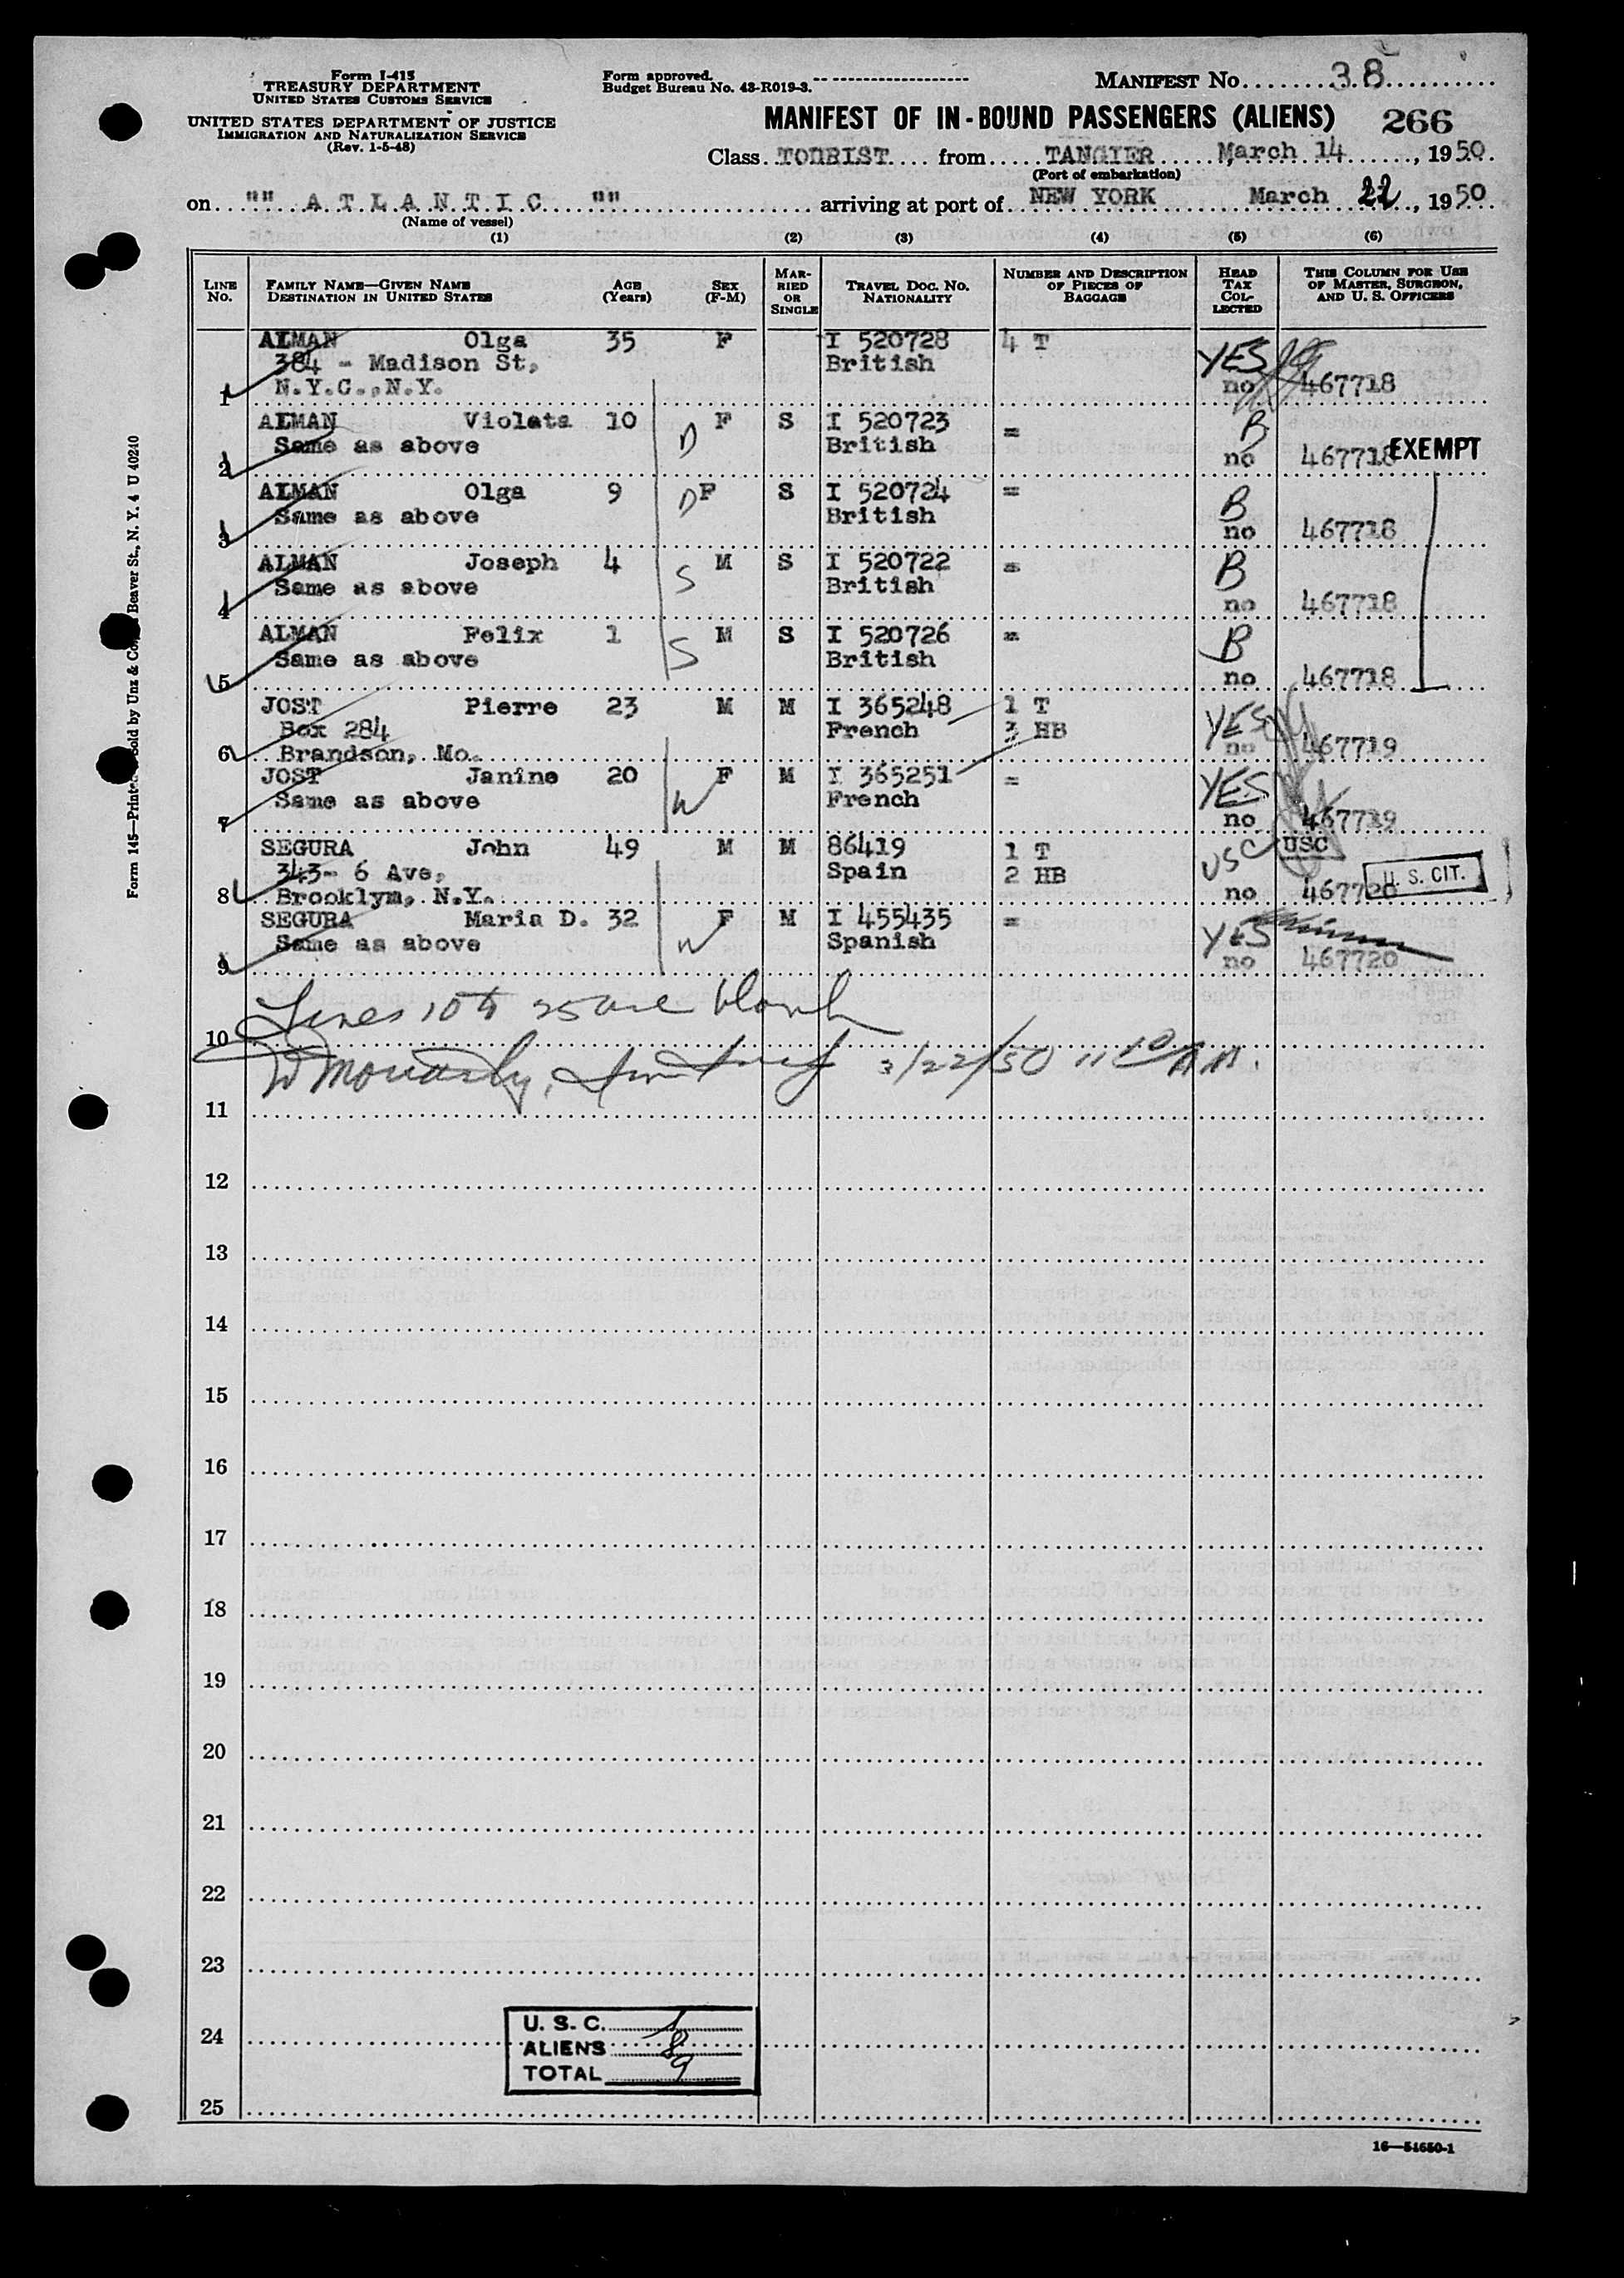 Form I-415
TREASURY DEPARTMENT
UNITED STATES CUSTOMS SERVICE
UNITED STATES DEPARTMENT OF JUSTICE
IMMIGRATION AND NATURALIZATION SERVICE
(Rev. 1-5-48)
Form approved.
Budget Bureau No. 43-R019-3.
MANIFEST No. 38
MANIFEST OF IN-BOUND PASSENGERS (ALIENS) 266
Class TOURIST from TANGIER, March 14, 1950
(Port of embarkation)
on "" ATLANTIC "" arriving at port of NEW YORK March 22, 1950
(Name of vessel)
(1) (2) (3) (4) (5) (6)
LINE No. FAMILY NAME—GIVEN NAME DESTINATION IN UNITED STATES AGE (Years) SEX (F-M) MARRIED OR SINGLE TRAVEL DOC. NO. NATIONALITY NUMBER AND DESCRIPTION OF PIECES OF BAGGAGE HEAD TAX COLLECTED THIS COLUMN FOR USE OF MASTER, SURGEON, AND U. S. OFFICERS
ALMAN Olga 35 F I 520728 4 T
384 - Madison St, British YES
1 N.Y.C.,N.Y. no 467718
ALMAN Violeta 10 D F S I 520723 = B
2 Same as above British no 467718 EXEMPT
ALMAN Olga 9 D F S I 520724 = B
3 Same as above British no 467718
ALMAN Joseph 4 S M S I 520722 = B
4 Same as above British no 467718
ALMAN Felix 1 S M S I 520726 = B
5 Same as above British no 467718
JOST Pierre 23 M M I 365248 1 T
Box 284 French 3 HB YES
6 Brandson, Mo. no 467719
JOST Janine 20 W F M I 365251 = YES
7 Same as above French no 467719
SEGURA John 49 M M 86419 1 T USC USC
343- 6 Ave, Spain 2 HB
8 Brooklym, N.Y. no 467720 U. S. CIT.
SEGURA Maria D. 32 W F M I 455435 = YES
9 Same as above Spanish no 467720
Lines 10 to 25 are blank
10
3/22/50 11 10 A.M.
11
12
13
14
15
16
17
18
19
20
21
22
23
24
25
U. S. C. 1
ALIENS 8
TOTAL 9
16—54650-1
Beaver St., N. Y. 4 U 40240